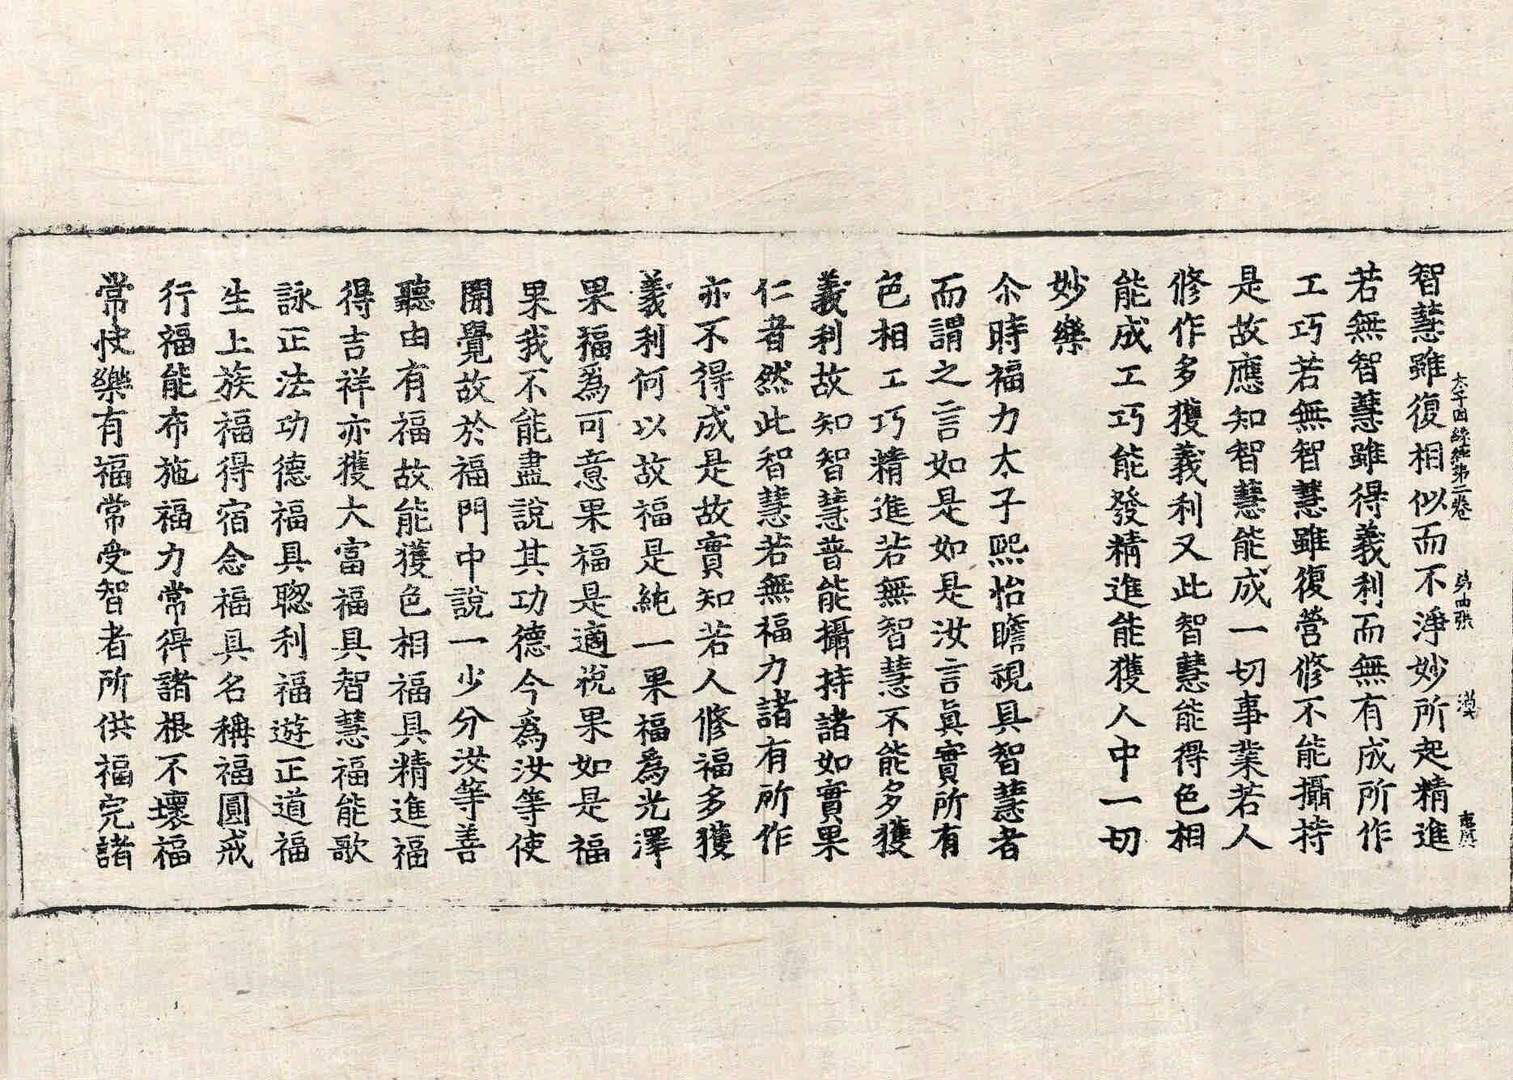 太子因縁經第二卷 第四張 漢
智慧雖復相似而不淨妙所起精進
若無智慧雖得義利而無有成所作
工巧若無智慧雖復營修不能攝持
是故應知智慧能成一切事業若人
修作多獲義利又此智慧能得色相
能成工巧能發精進能獲人中一切
妙樂
尒時福力太子熙怡瞻視具智慧者
而謂之言如是如是汝言眞實所有
色相工巧精進若無智慧不能多獲
義利故知智慧普能攝持諸如實果
仁者然此智慧若無福力諸有所作
亦不得成是故實知若人修福多獲
義利何以故福是純一果福爲光澤
果福爲可意果福是適悅果如是福
果我不能盡說其功德今爲汝等使
開覺故於福門中說一少分汝等善
聽由有福故能獲色相福具精進福
得吉祥亦獲大富福具智慧福能歌
詠正法功德福具聦利福遊正道福
生上族福得宿念福具名稱福圓戒
行福能布施福力常得諸根不壞福
常快樂有福常受智者所供福完諸